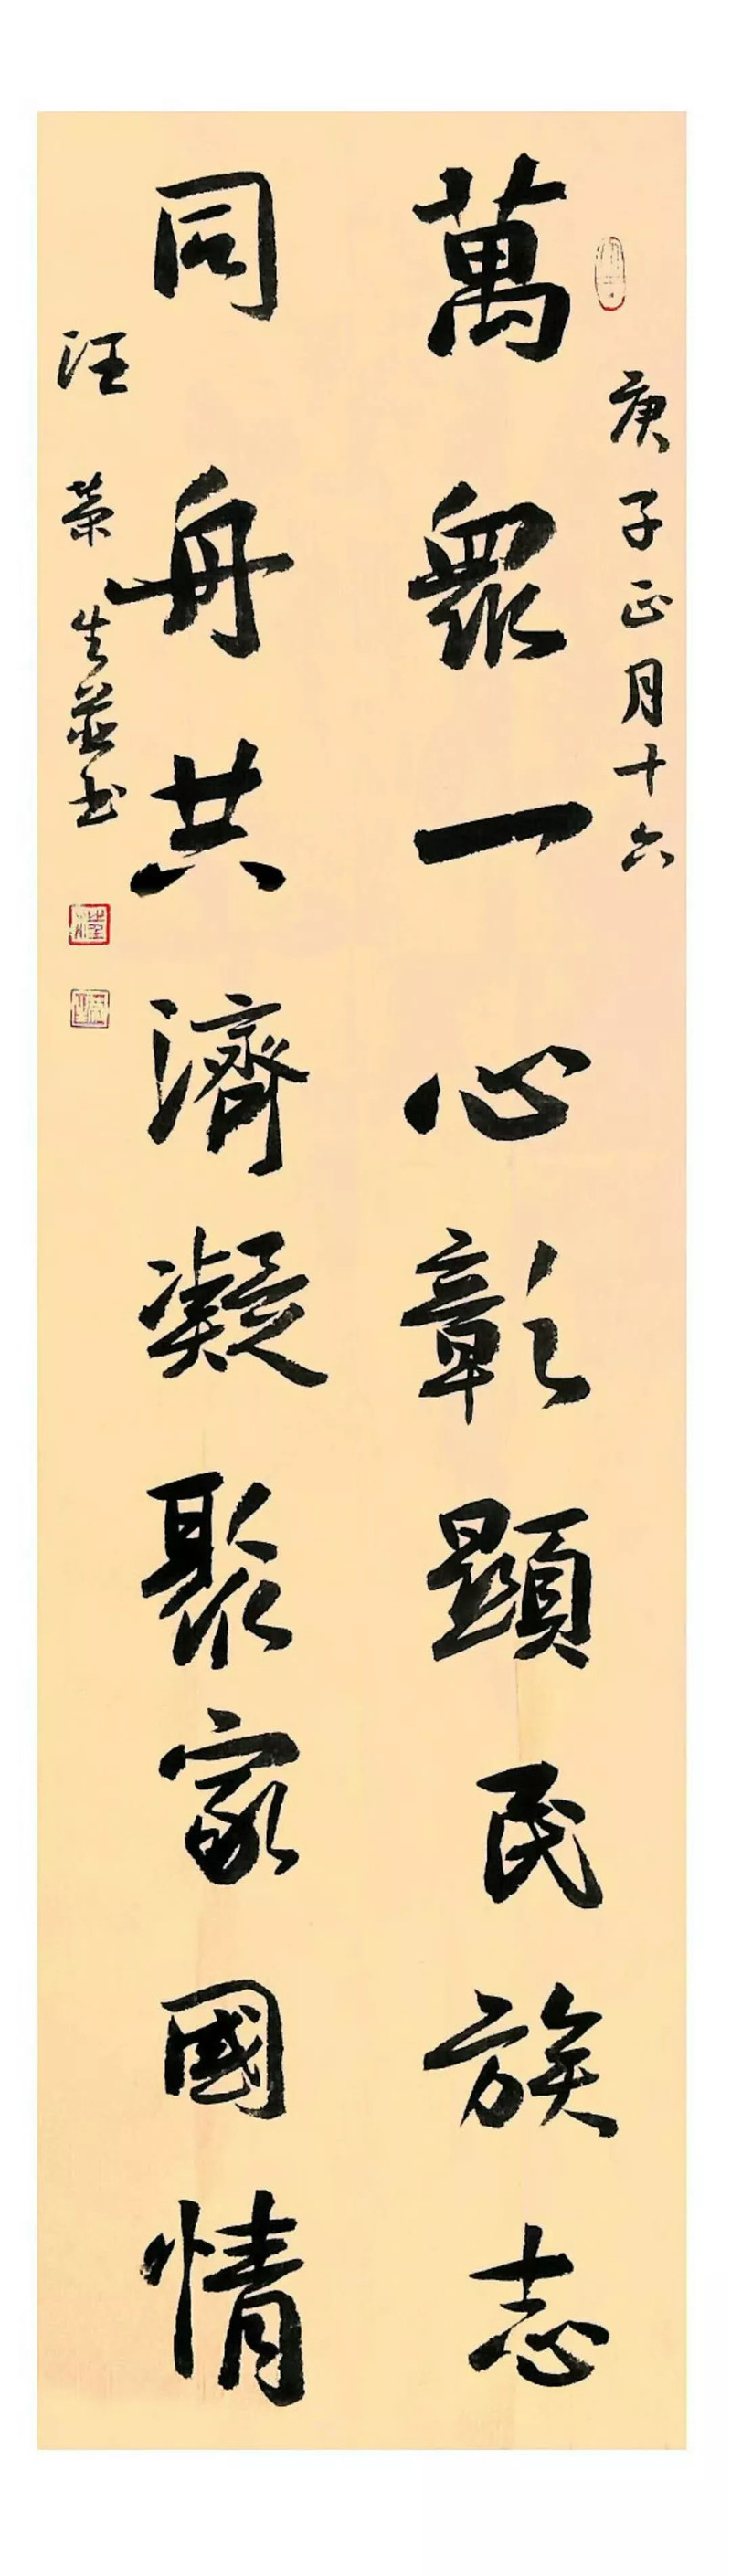 庚子正月十六
萬眾一心彰顯民族志
同舟共濟凝聚家國情
汪榮生並书